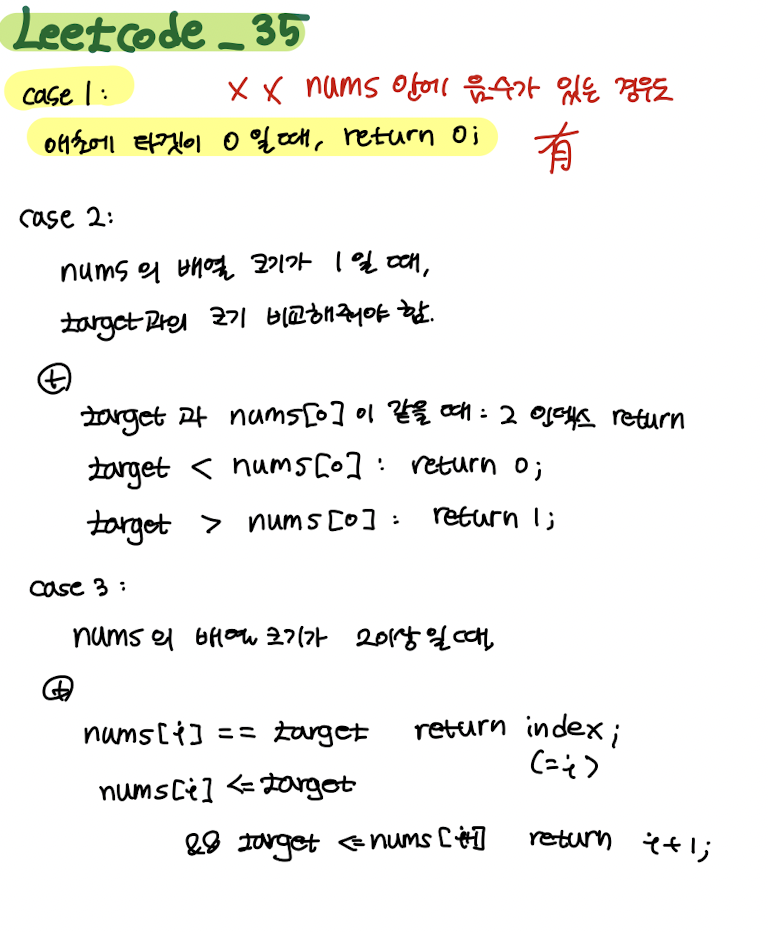 Leetcode_35
case 1: X X nums 안에 음수가 있는 경우도
애초에 타겟이 0 일 때, return 0; 有
case 2:
nums 의 배열 크기가 1 일 때,
target과의 크기 비교해줘야 함.
+
target 과 nums[0] 이 같을 때 : 그 인덱스 return
target < nums[0] : return 0;
target > nums[0] : return 1;
case 3 :
nums 의 배열 크기가 2이상 일 때,
+
nums[i] == target return index;
(=i)
nums[i] <= target
&& target <= nums[i+1] return i+1;